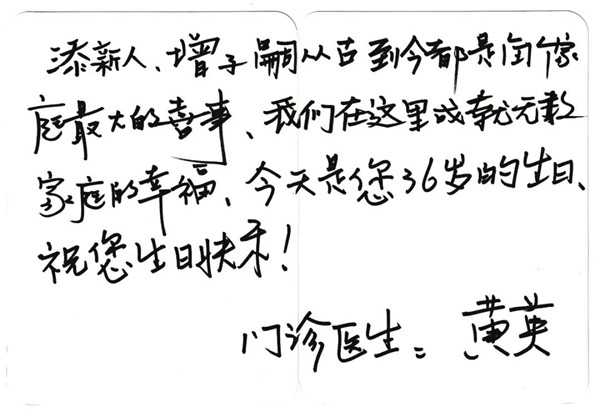 添新人、增子嗣从古到今都是每个家
庭最大的喜事、我们在这里成就无数
家庭的幸福、今天是您36岁的生日、
祝您生日快乐！
门诊医生：黄英